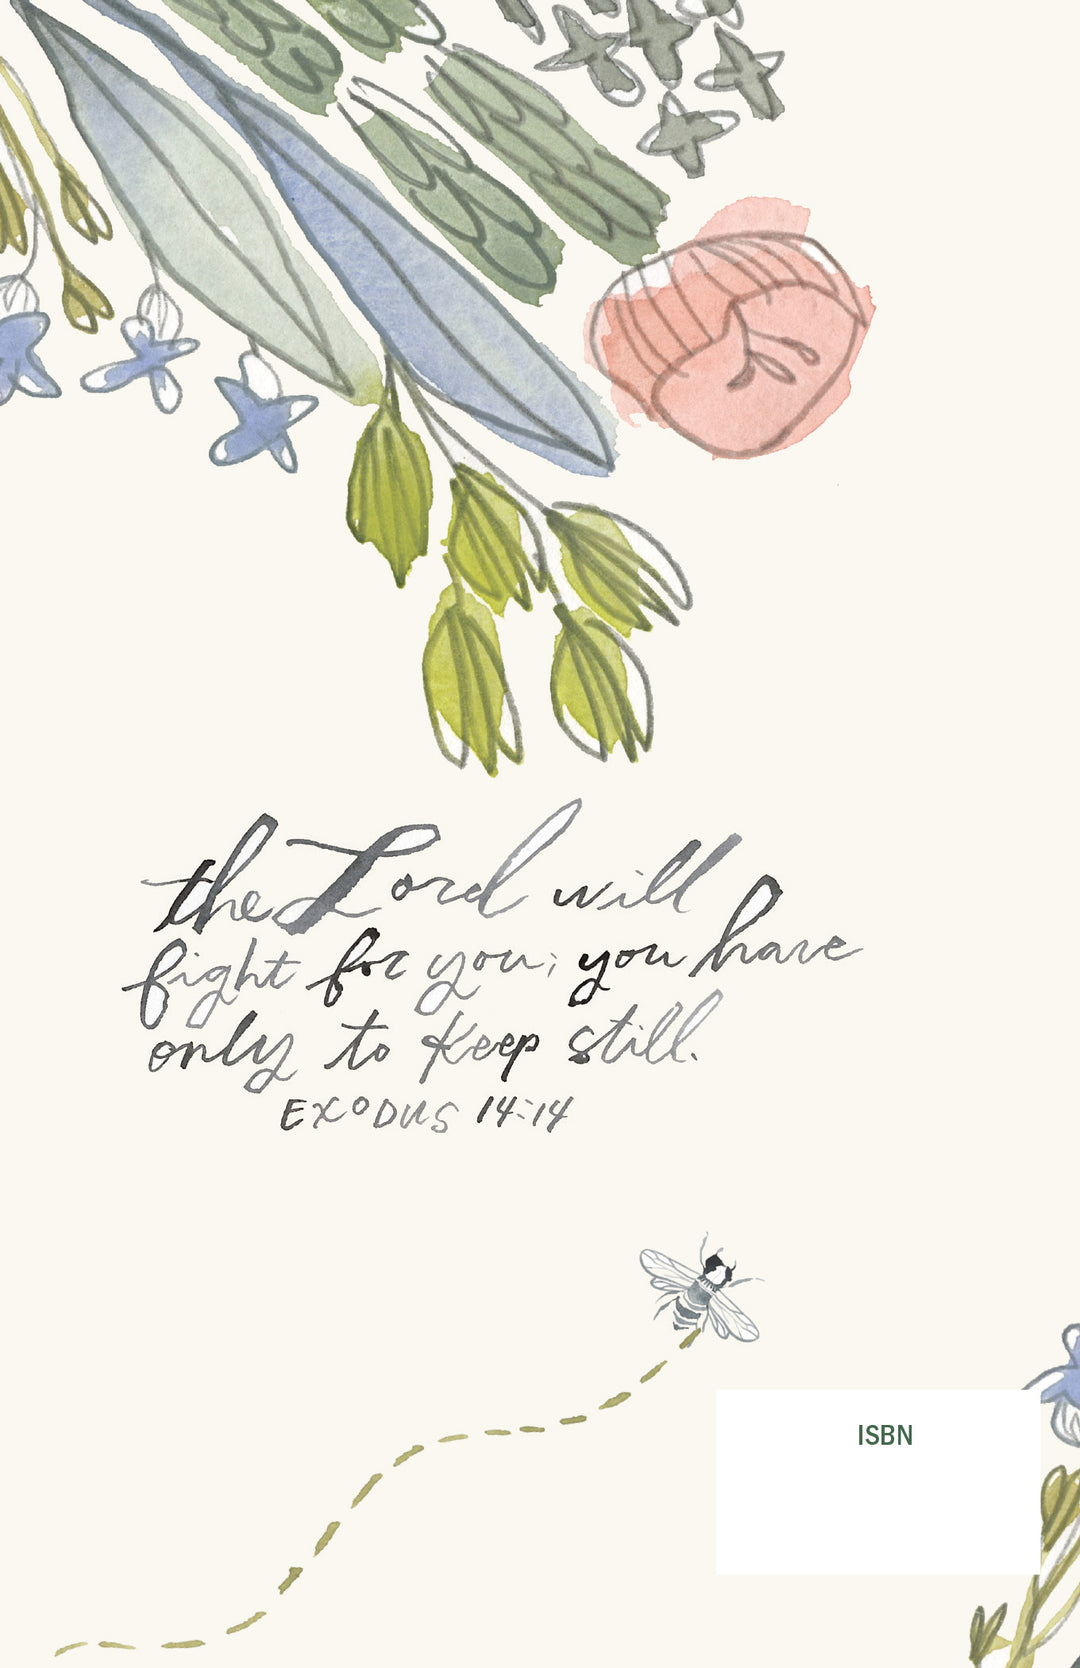 the Lord will
fight for you; you have
only to keep still.
EXODUS 14:14
ISBN